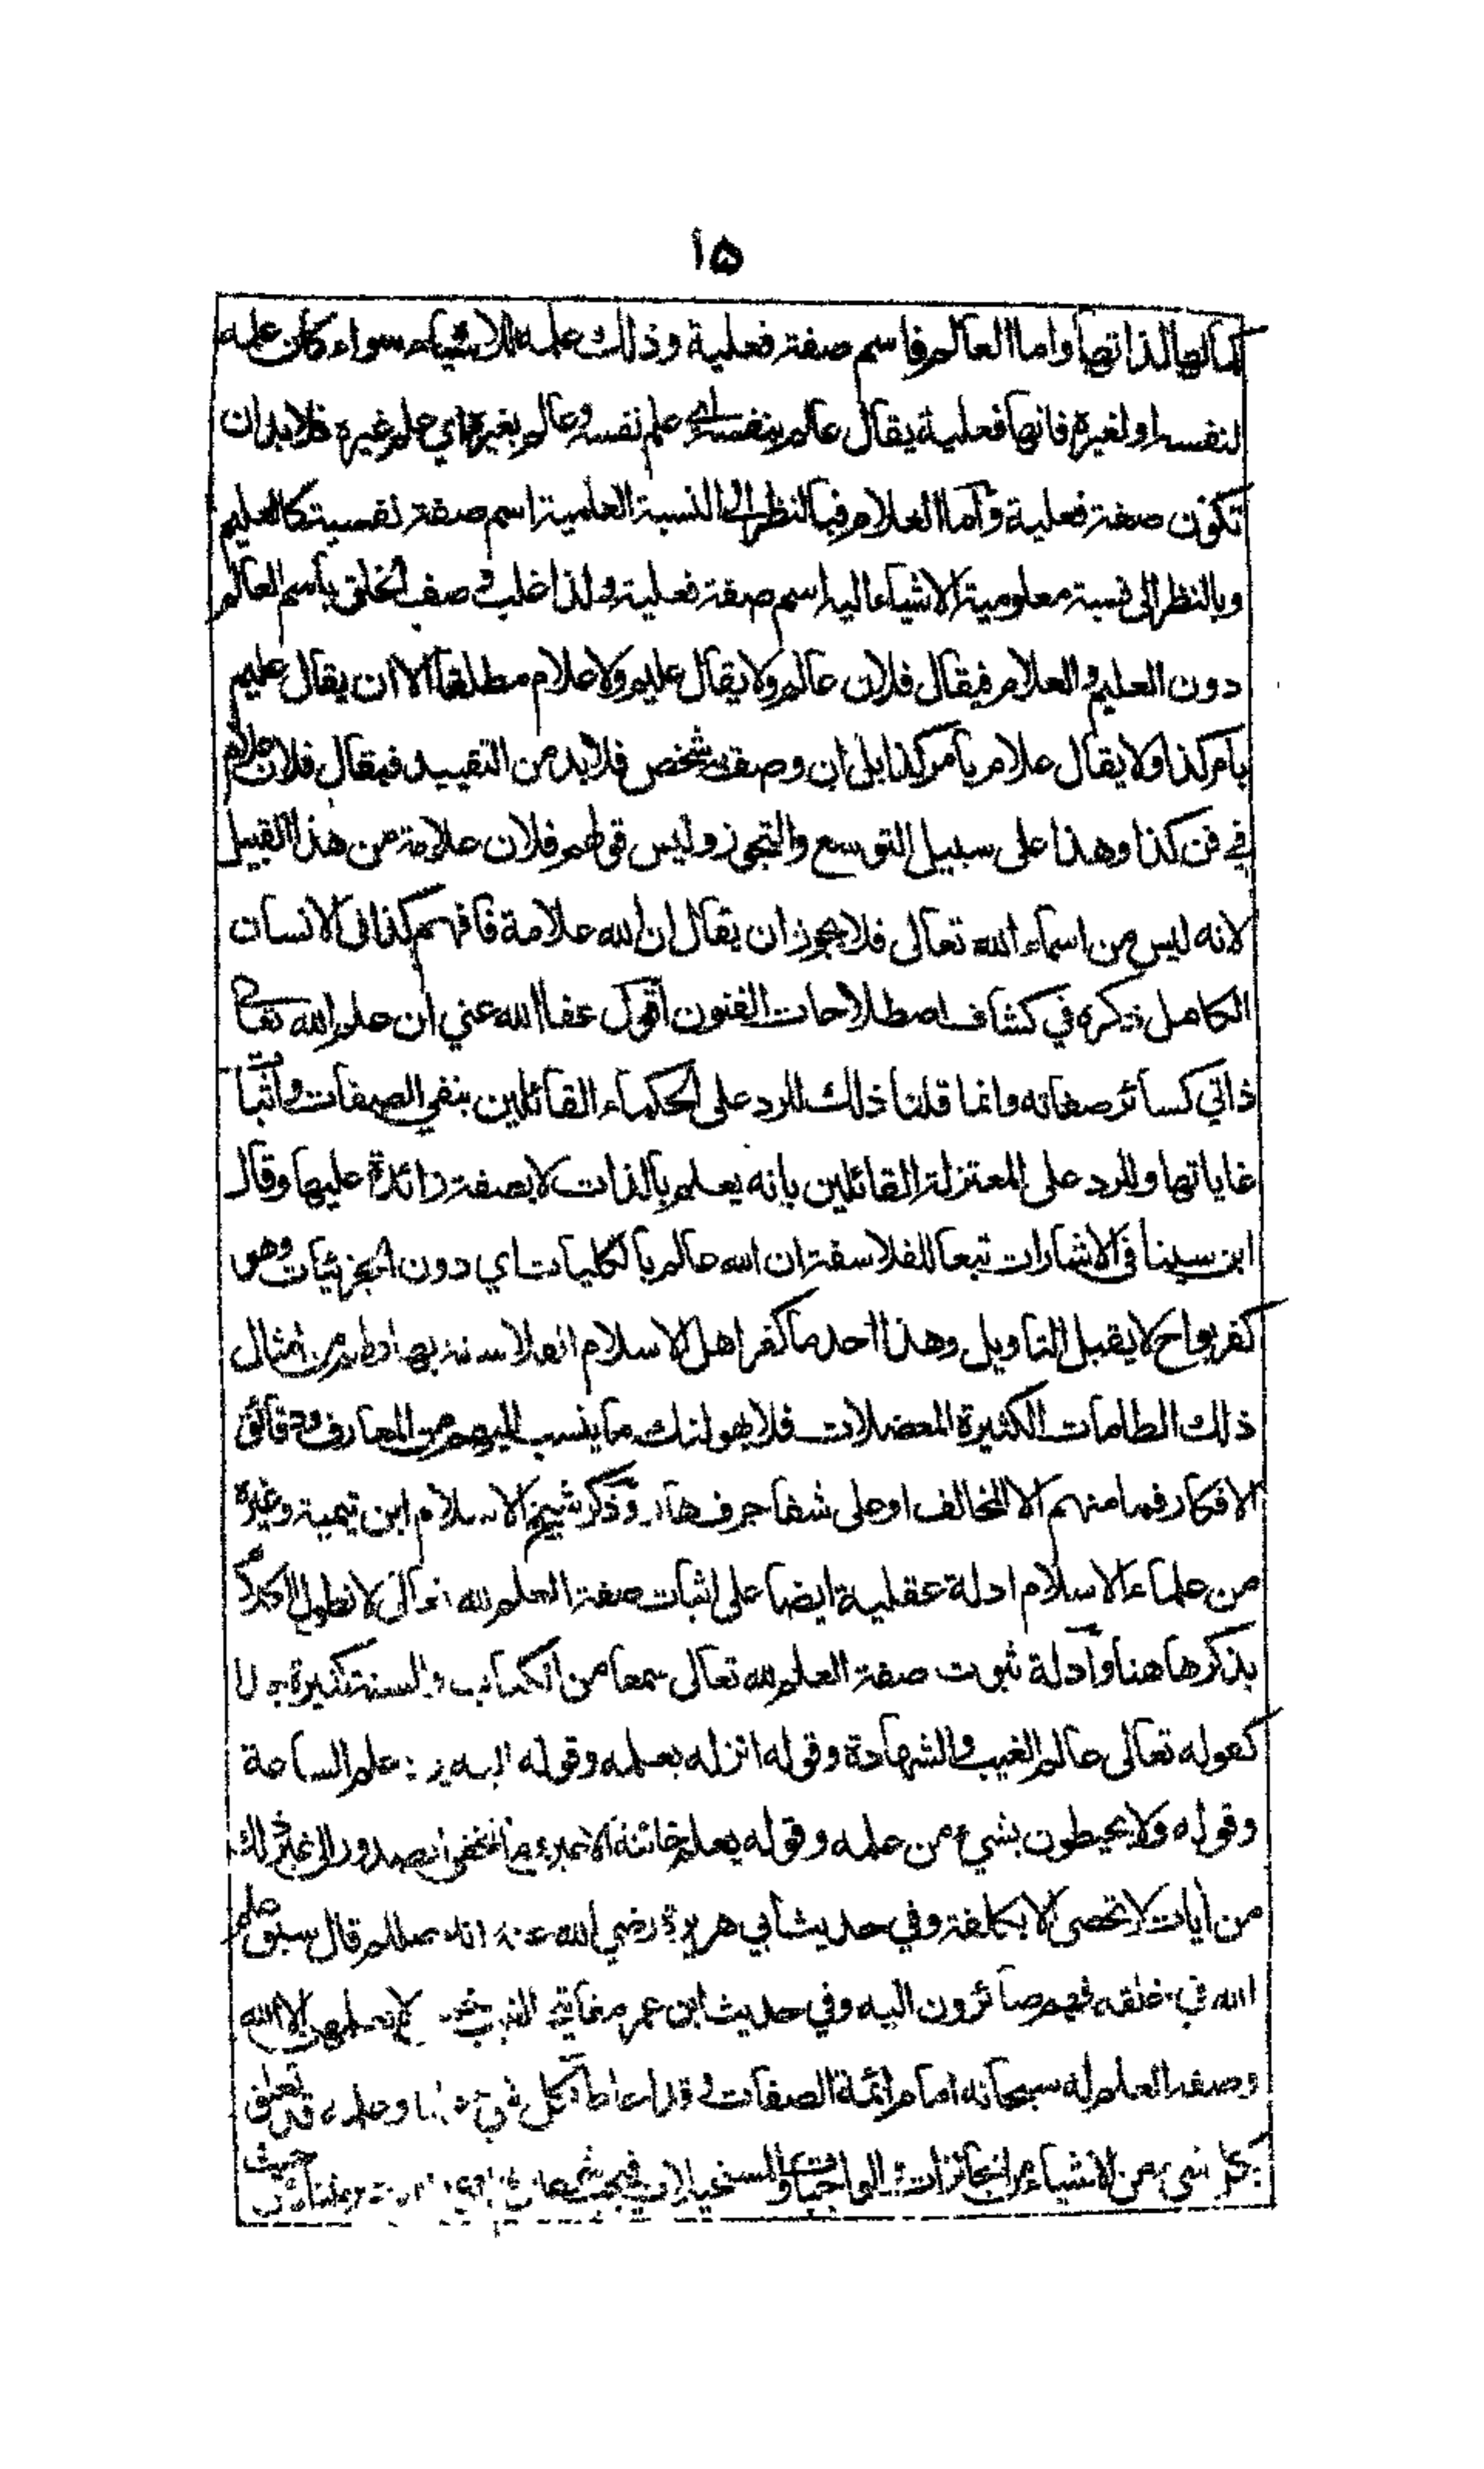 ١٥
كمالها لذاتها واما العالم فاسم صفة فعلية وذلك علمه للاشياء سواء كان علمه
لنفسه او لغيره فانها فعلية يقال عالم بنفسه اي علم نفسه وعالم بغيره اي علم غيره فلا بد ان
تكون صفة فعلية واما العلام فبالنظر الى النسبة العلمية اسم صفة نفسية كالعليم
وبالنظر الى نسبة معلومية الاشياء اليه اسم صفة فعلية ولذا غلب وصف الخلق باسم العالم
دون العليم والعلام فيقال فلان عالم ولا يقال عليم ولا علام مطلقا الا ان يقال عليم
بامر كذا ولا يقال علام بامر كذا بل ان وصف به شخص فلا بد من التقييد فيقال فلان علام
في فن كذا وهذا على سبيل التوسع والتجوز وليس قولهم فلان علامة من هذا القبيل
لانه ليس من اسماء الله تعالى فلا يجوز ان يقال ان الله علامة فافهم كذا في الانسان
الكامل ذكره في كشاف اصطلاحات الفنون اقول عفا الله عني ان علم الله تعالى
ذاتي كسائر صفاته وانما قلنا ذلك للرد على الحكماء القائلين بنفي الصفات واثبات
غاياتها وللرد على المعتزلة القائلين بانه يعلم بالذات لا بصفة زائدة عليها وقال
ابن سينا في الاشارات تبعا للفلاسفة ان الله عالم بالكليات اي دون الجزئيات وهو
كفر بواح لا يقبل التاويل وهذا احد ما كفر اهل الاسلام الفلاسفة بها ولهم من امثال
ذلك الطامات الكثيرة المعضلات فلا يهولنك ما ينسب اليهم من المعارف ودقائق
الافكار فما منهم الا المخالف او على شفا جرف هار وذكر شيخ الاسلام ابن تيمية وغيره
من علماء الاسلام ادلة عقلية ايضا على اثبات صفة العلم لله تعالى لا نطول الكلام
بذكرها هنا وادلة ثبوت صفة العلم لله تعالى سمعا من الكتاب والسنة كثيرة جدا
كقوله تعالى عالم الغيب والشهادة وقوله انزله بعلمه وقوله اليه يرد علم الساعة
وقوله ولا يحيطون بشيء من علمه وقوله يعلم خائنة الاعين وما تخفي الصدور الى غير ذلك
من ايات لا تحصى الا بكلفة وفي حديث ابي هريرة رضي الله عنه انه صللم قال سبق علم
الله في خلقه فهم صائرون اليه وفي حديث ابن عمر مفاتيح الغيب خمس لا يعلمها الا الله
وصفة العلم له سبحانه امام ائمة الصفات وقد احاط بكل شيء علما وعلمه قد تعلق
بكل شيء من الاشياء من الجائزات والواجبات والمستحيلات فيجب شرعا